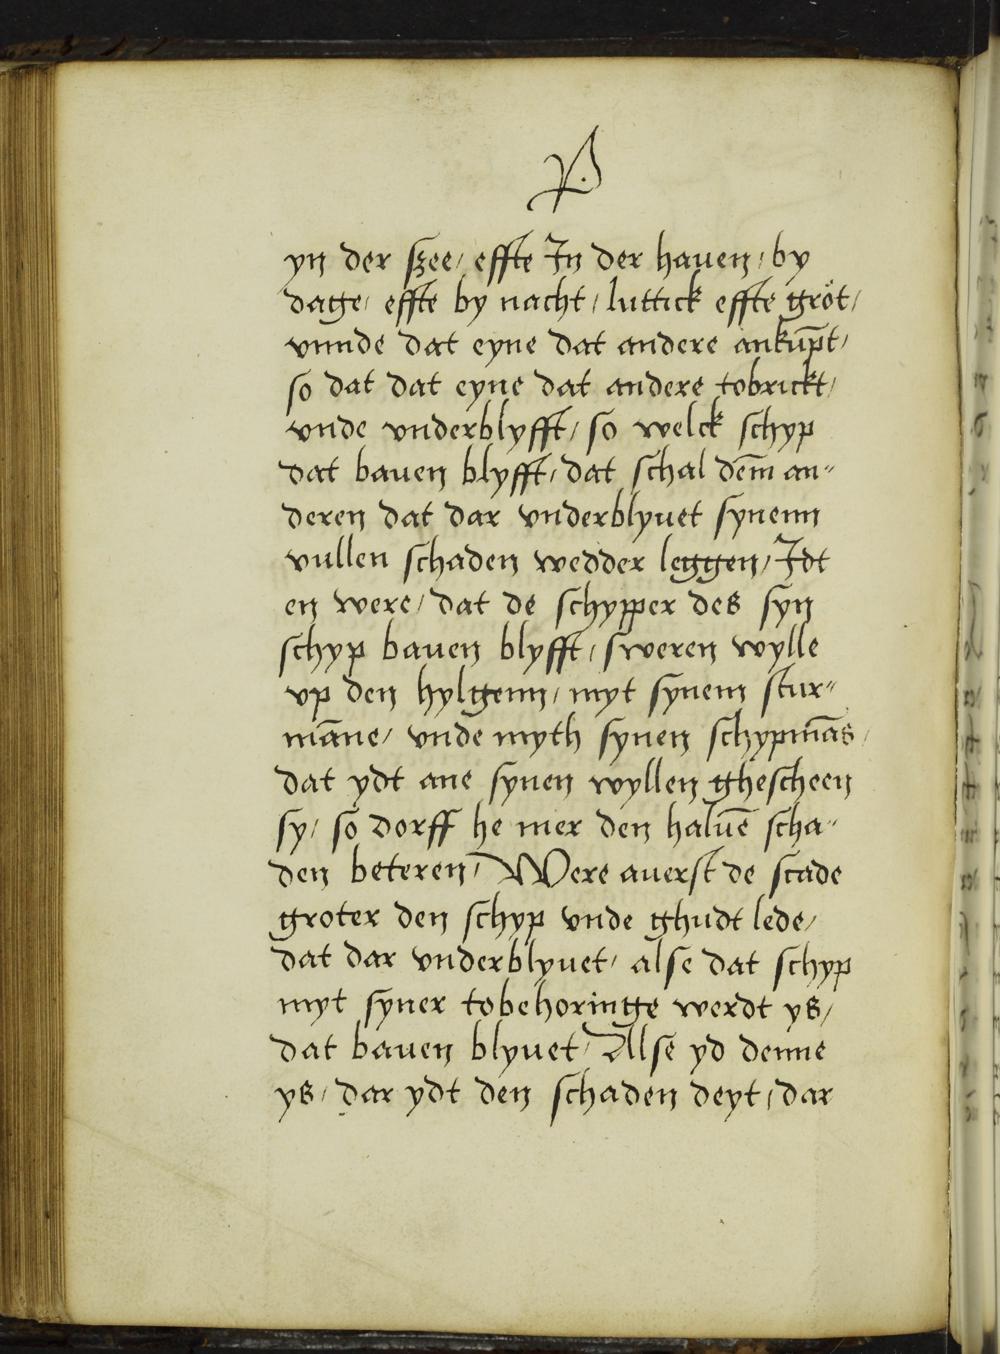 P.
yn der szee/ effte In der hauen/ by
dage/ effte by nacht/ luttick effte gröt/
vnnde dat eyne dat andere ankūpt/
so dat dat eyne dat andere tobrickt/
vnde vnderblyfft/ so welck schyp
dat bauen blyfft/ dat schal dem̄ an-
deren dat dar vnderblyuet synenn
vullen schaden wedder leggen/ Idt
en were/ dat de schypper des syn
schyp bauen blyfft/ sweren wylle
vp den hylgenn/ myt synem stur-
māne/ vnde myth synen schypmās/
dat ydt ane synen wyllen ghescheen
sy/ so dorff he mer den haluē scha-
den beteren/ Were auerst de scade
groter den schyp vnde ghudt lede/
dat dar vnderblyuet/ alse dat schyp
myt syner tobehoringe werdt ys/
dat bauen blyuet/ Alse yd denne
ys/ dar ydt den schaden deyt/ dar